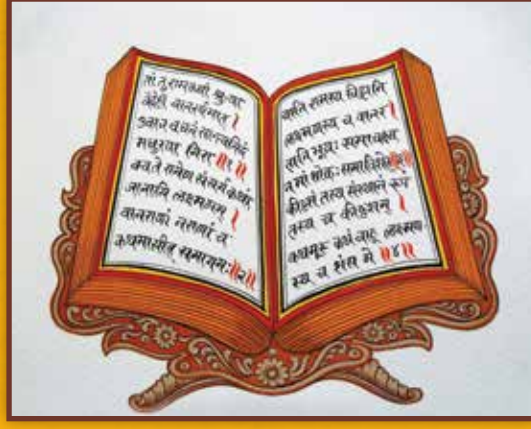 तां तु रामकथां श्रुत्वा
वैदेही वानरर्षभात् ।
उवाच वचनं सान्त्वमिदं
मधुरया गिरा ॥१॥
क्व ते रामेण संसर्गः कथं
जानासि लक्ष्मणम् ।
वानराणां नराणां च
कथमासीत् समागमः॥२॥
यानि रामस्य लिङ्गानि
लक्ष्मणस्य च वानर ।
तानि भूयः समाचक्ष्व
न मां शोकः समाविशेत्॥३॥
कीदृशं तस्य संस्थानं रूपं
तस्य च कीदृशम् ।
कथमूरू कथं बाहू लक्ष्मण
स्य च शंस मे ॥४॥